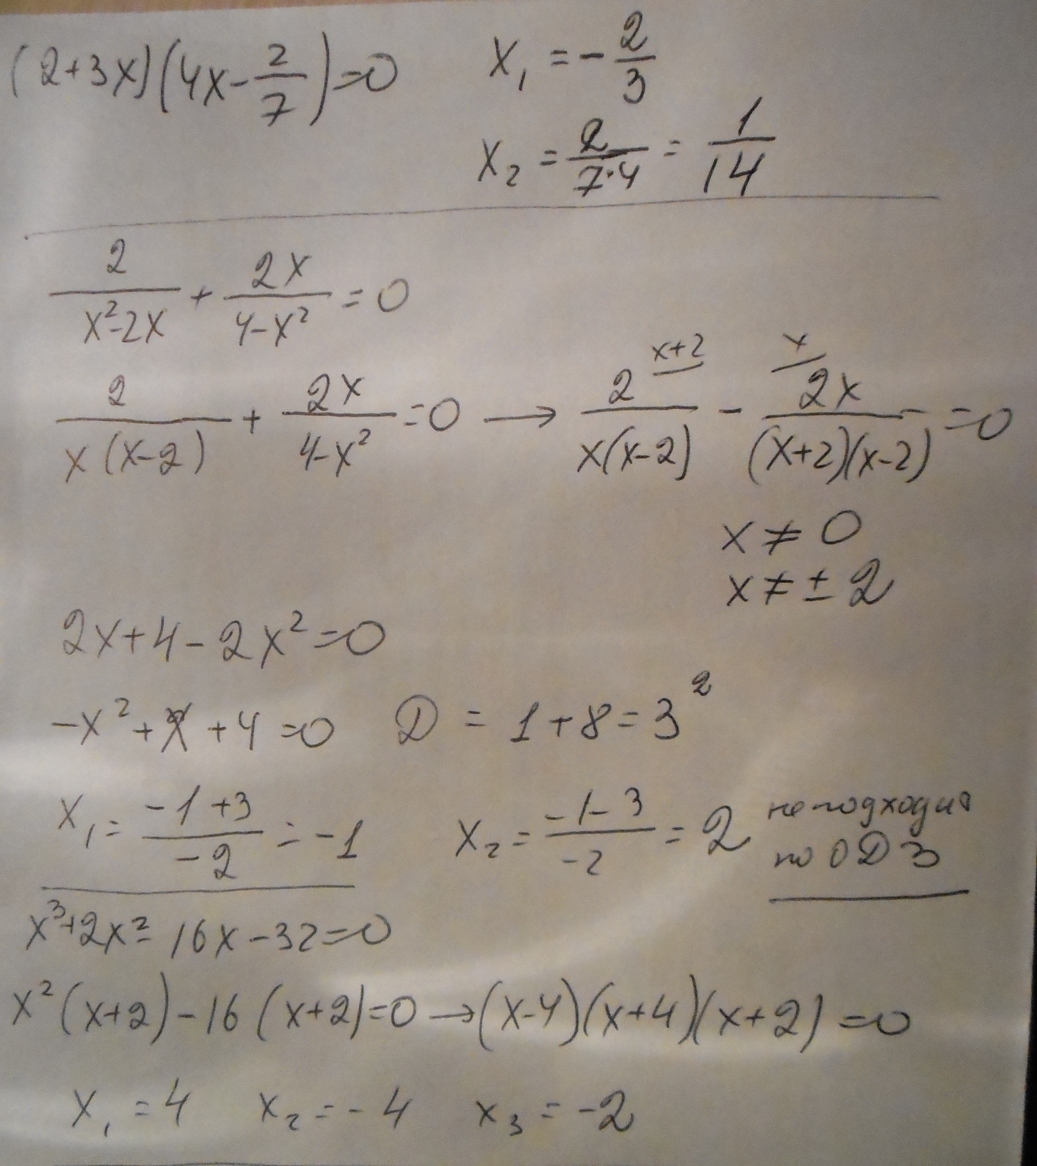 (2+3x)(4x-2/7)=0 x₁ = -2/3
x₂ = 2/(7·4) = 1/14
2/(x²-2x) + 2x/(4-x²) = 0
2/(x(x-2)) + 2x/(4-x²) = 0 → 2^(x+2)/(x(x-2)) - ^(x)2x/((x+2)(x-2)) = 0
x ≠ 0
x ≠ ± 2
2x+4-2x²=0
-x²+x+4=0 D = 1+8=3²
x₁ = (-1+3)/(-2) = -1 x₂ = (-1-3)/(-2) = 2 не подходит
по ОДЗ
x³+2x²-16x-32=0
x²(x+2)-16(x+2)=0→(x-4)(x+4)(x+2)=0
x₁ = 4 x₂ = -4 x₃ = -2